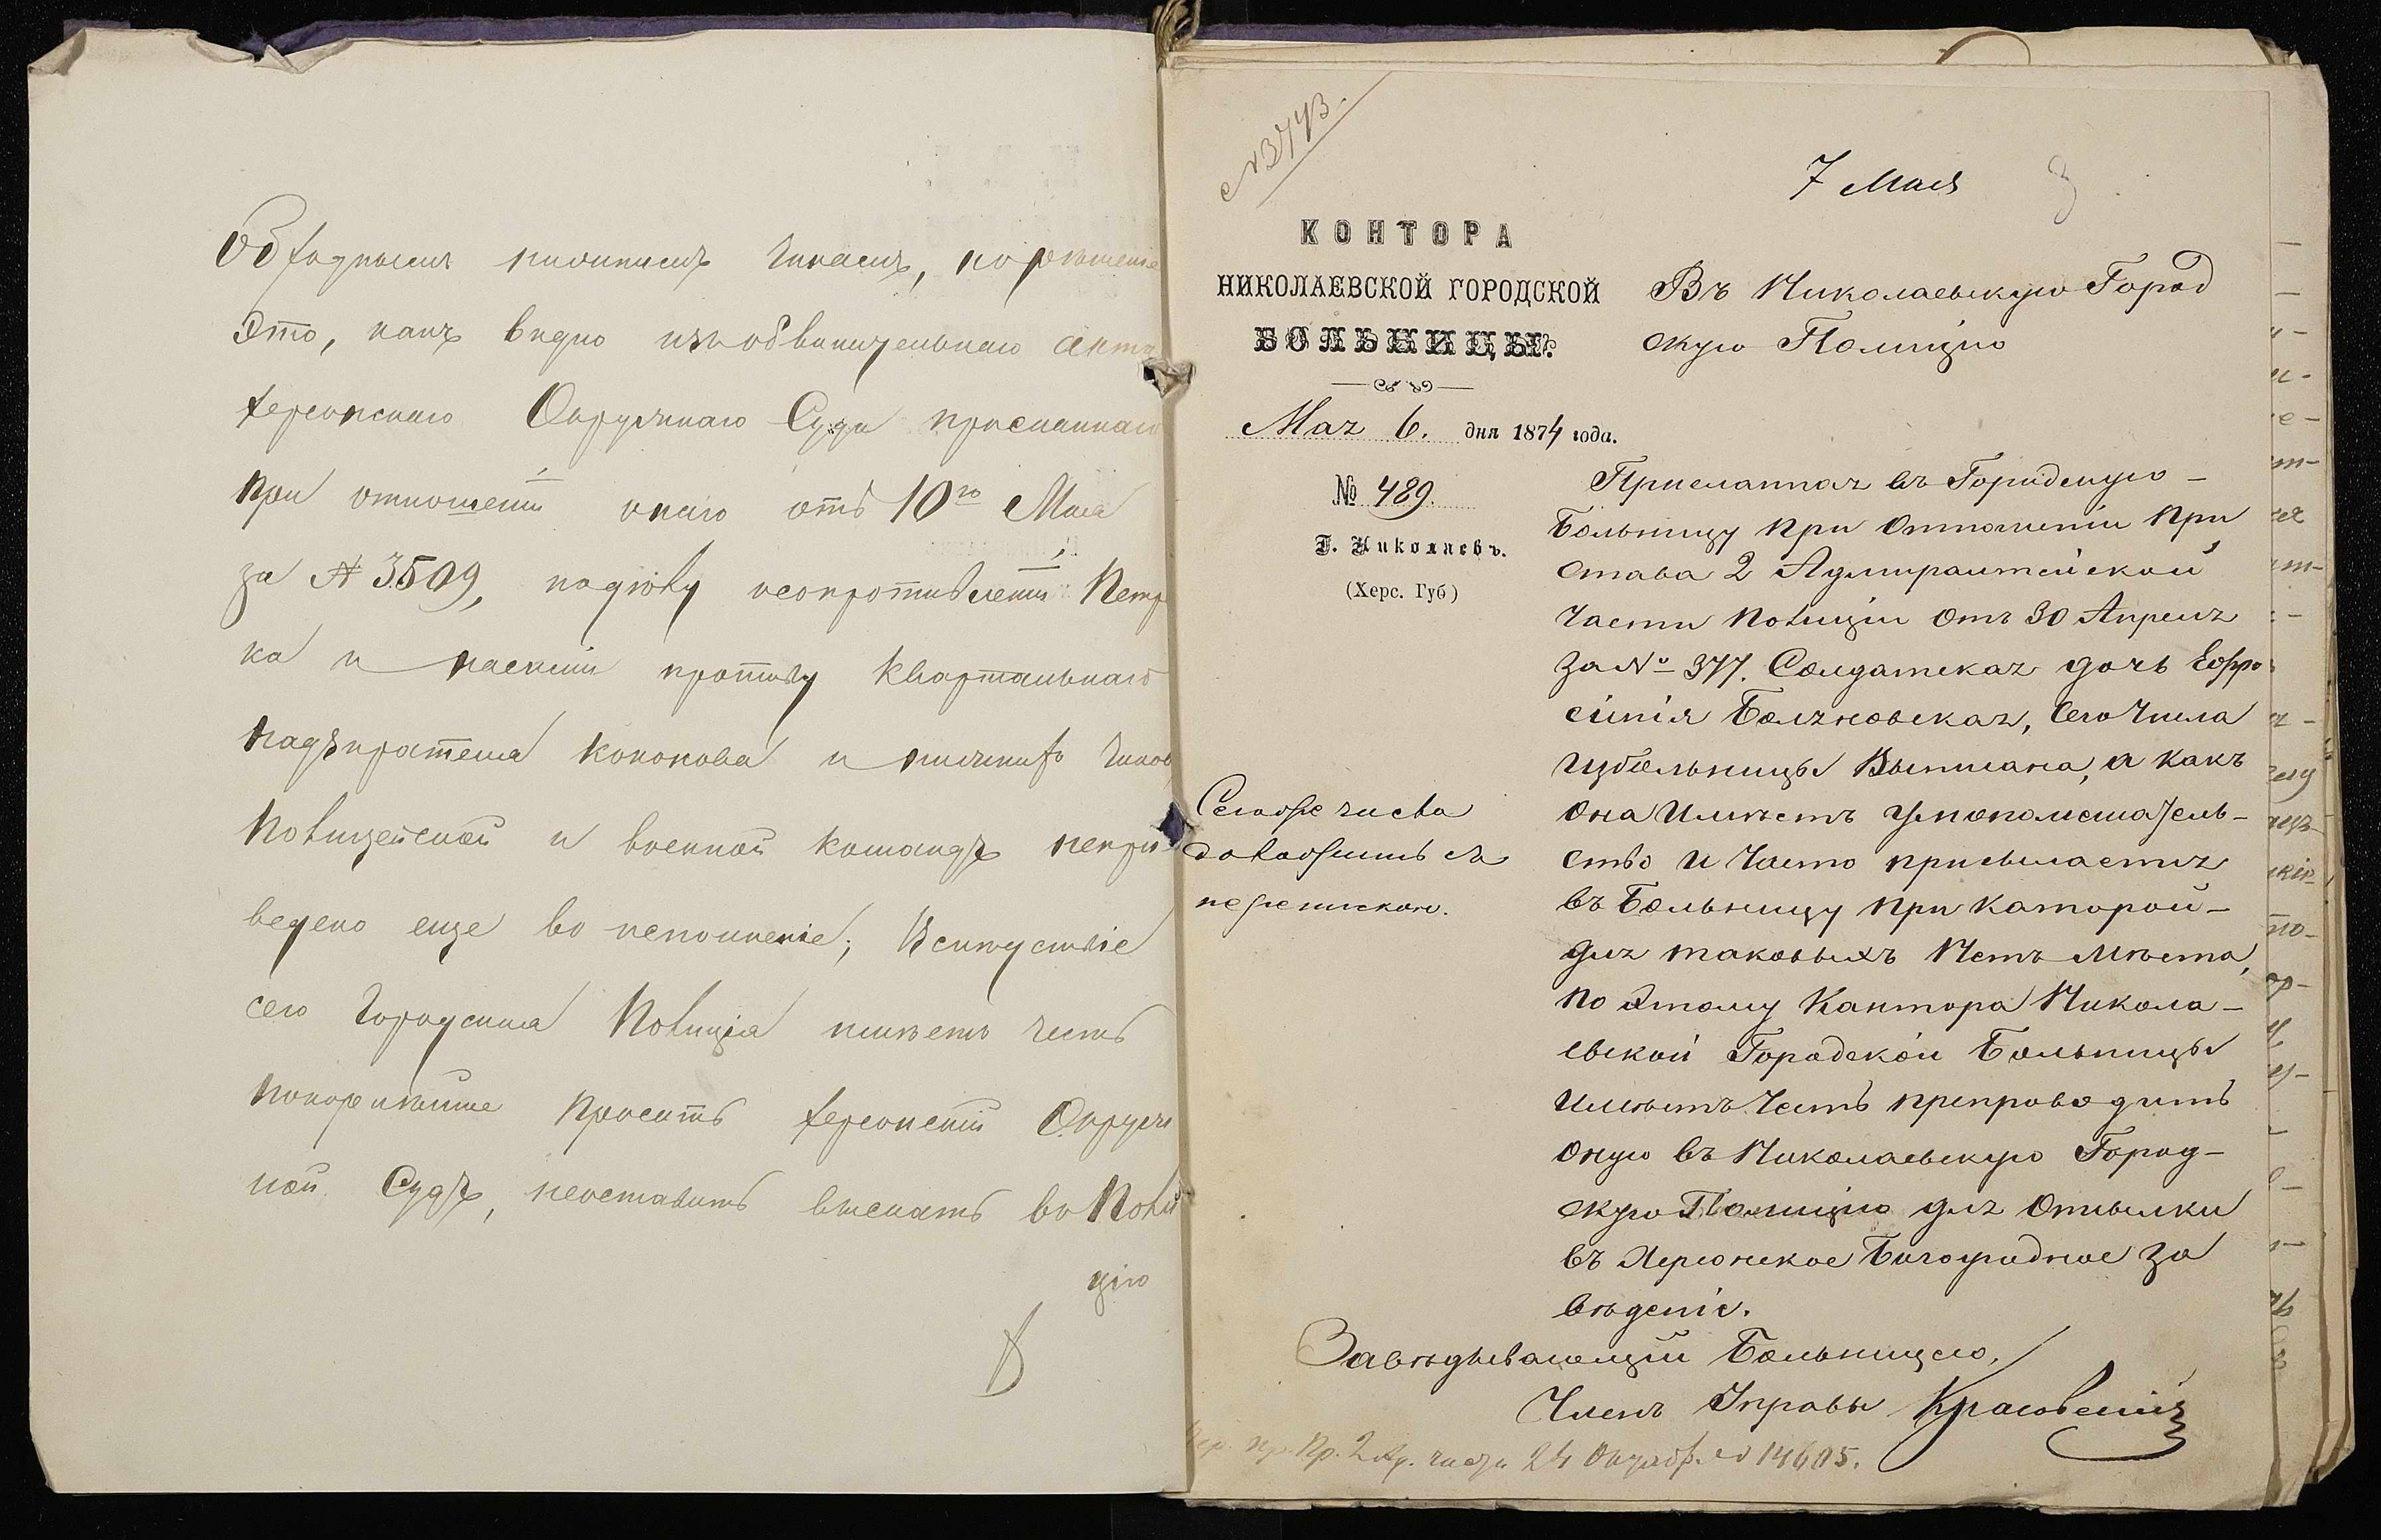 Обходнымъ нижнимъ чинамъ, по решение
Это, какъ видно изъ обвинительнаго акта
Херсонскаго Окружнаго Суда присланнаго
при отношеніи онаго отъ 10го Мая
за № 3509, по дѣлу
ка и противу Квартальнаго
Надзирателя Кононова и нижнихъ чинов
Полицейской и военной командъ непри
ведено еще во исполненіе; Вслѣдствіе
сего Городская Полиція имѣетъ честь
покорнѣйше просить Херсонскій Окруж
ной Судъ, неоставить выслать въ Поли
цію
№ 3743.
7 Мая
КОНТОРА
НИКОЛАЕВСКОЙ ГОРОДСКОЙ
БОЛЬНИЦЫ.
Мая 6. дня 1874 года.
№ 489.
Г. Николаевъ.
(Херс. Губ)
Въ Николаевскую Город
скую Полицію
Присланная въ Городскую –
Больницу при Отношеніи При
става 2 Адмиралтейской
части Полиціи отъ 30 Апреля
за № 377. Солдатская дочь Ефро
сінія Болзновская, сего числа
изъ больницы Выписана, а какъ
она Имѣетъ умопомешатель–
ство и Часто присылается
въ Больницу при каторой –
для таковыхъ Нетъ Мѣста,
по Этому Кантора Никола–
евской Городской Больницы
Имѣетъ Честь препроводить
оную въ Николаевскую Город–
скую Полицію для Отсылки
въ Херсонское Богоугодное За
вѣденіе.
Сего же числа
доложить съ
перепискою.
Завѣдывающій Больницею,
Членъ Управы Красовскій
Пр. 2 Ад. части 24 Октяб. № 14605.